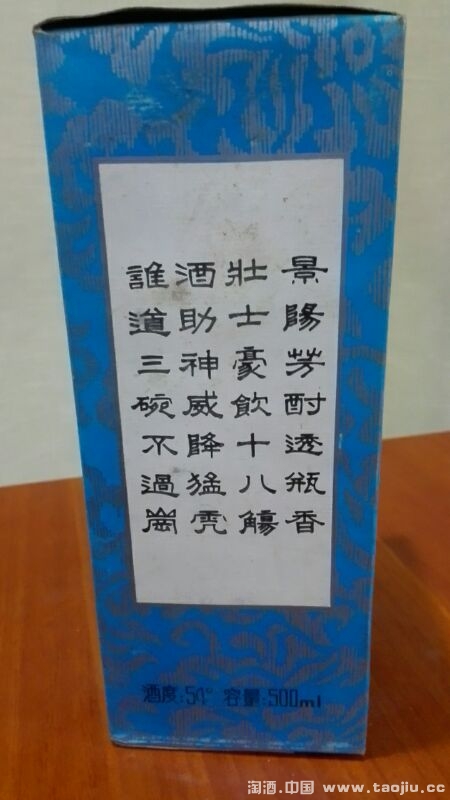 景陽芳酎透瓶香
壯士豪飲十八觴
酒助神威降猛虎
誰道三碗不過崗
酒度:54° 容量:500ml
淘酒.中国 www.taojiu.cc